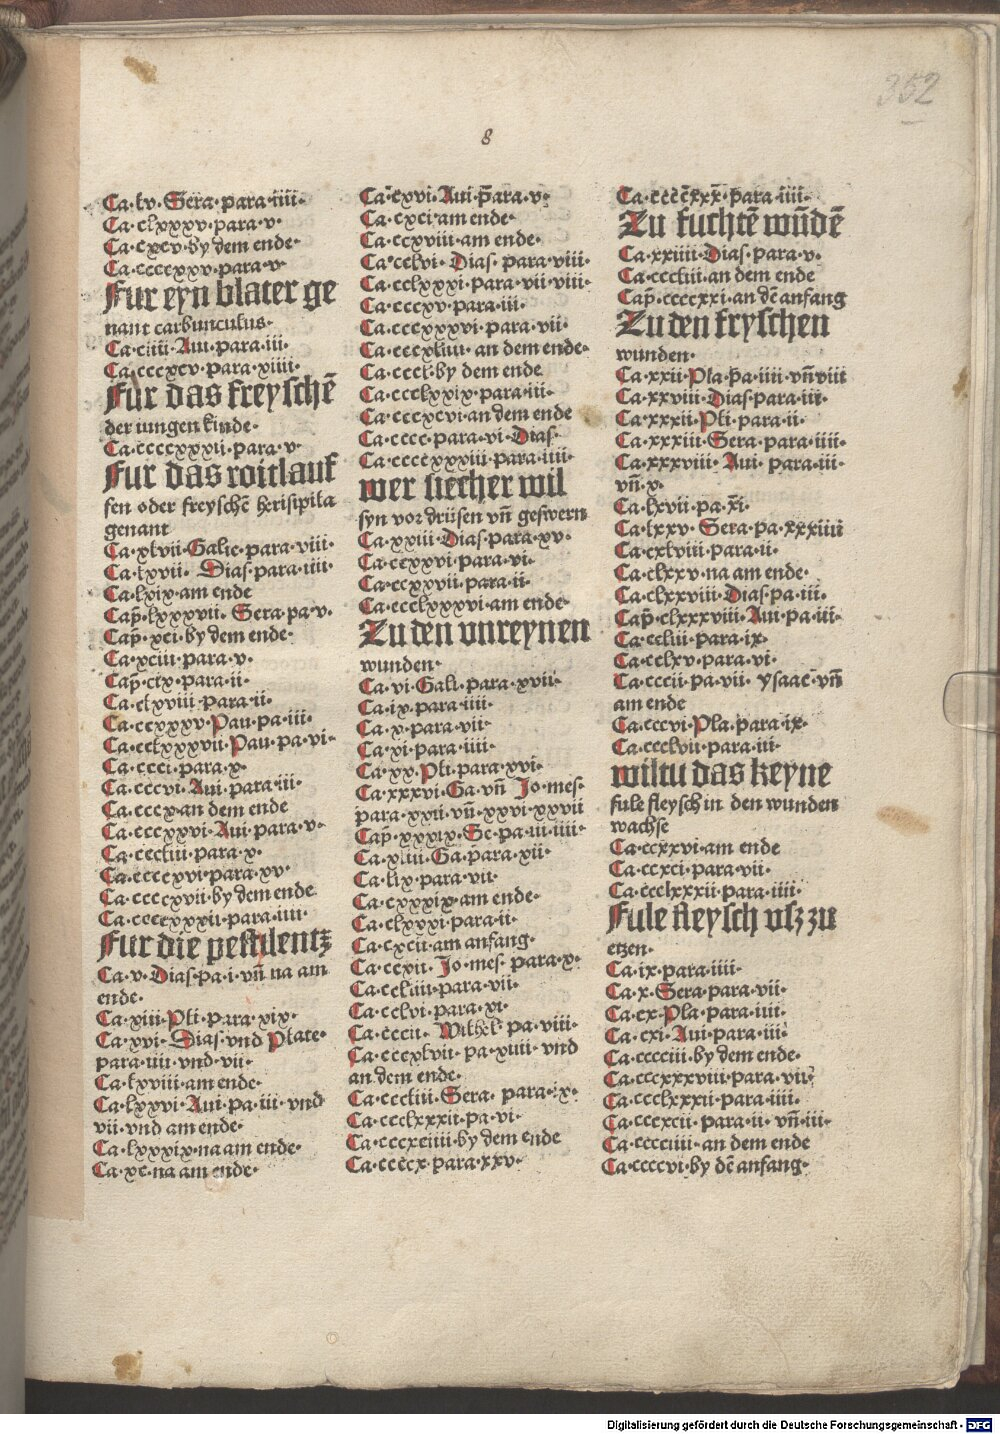 352
8
Ca·lv·Sera·para·iiii·
Ca·clxxxv·para·v·
Ca·cxcv·by dem ende·
Ca·ccccxxv·para·v·
Fur eyn blater ge
nant carbunculus·
Ca·ciiii·Aui·para·iii·
Ca·cccxcv·para·xiiii·
Fur das freyschē
der iungen kinde·
Ca·ccccxxxii·para·v·
Fur das roitlauf
fen oder freyschē herisipila
genant
Ca·xlvii·Galie·para·viii·
Ca·lxvii· Dias·para·iiii·
Ca·lxix·am ende
Cap̄·lxxxvii· Sera·pa·v·
Cap̄·xci·by dem ende·
Ca·xciii·para·v·
Cap̄·cix·para·ii·
Ca·clxviii·para·ii·
Ca·ccxxxv·Pau·pa·iii·
Ca·cclxxxvii·Pau·pa·vi·
Ca·ccci·para·x·
Ca·cccvi·Aui·para·iii·
Ca·cccx·an dem ende
Ca·cccxxvi·Aui·para·v·
Ca·cccliii·para·x·
Ca·ccccxvi·para·xv·
Ca·ccccxvii·by dem ende
Ca·ccccxxxii·para·iiii·
Fur die pestilentz
Ca·v·Dias·pa·i·vn̄ na am
ende·
Ca·xiii·Pli·para·xix·
Ca·xvi· Dias·vnd Plate·
para·iiii·vnd·vii·
Ca·lxviii·am ende·
Ca·lxxvi·Aui·pa·iii·vnd
vii·vnd am ende·
Ca·lxxxix·na am ende·
Ca·xc·na am ende·
Ca·cxvi·Aui·p̄ara·v·
Ca·cxci·am ende·
Ca·ccxviii·am ende·
Ca·cclvi· Dias· para·viii·
Ca·cclxxxi·para·vii·viii·
Ca·cccxv·para·iii·
Ca·cccxxxvi·para·vii·
Ca·cccxliiii· an dem ende·
Ca·cccl·by dem ende
Ca·ccclxxix·para·iii·
Ca·cccxcvi·an dem ende
Ca·cccc·para·vi·Dias·
Ca·ccccxxxiii·para·iiii·
wer siecher wil
syn vor drüsen vn̄ geswern
Ca·xxiii·Dias·para·xv·
Ca·ccxxvi·para·vi·
Ca·ccxxvii·para·ii·
Ca·ccclxxxvi·am ende·
Zu den vnreynen
wunden·
Ca·vi·Gali·para·xvii·
Ca·ix·para·iiii·
Ca·x·para·vii·
Ca·xi·para·iiii·
Ca·xx·Pli·para·xvi·
Ca·xxxvi·Ga·vn̄ Jo·mes·
para·xxii·vn̄·xxvi·xxvii
Cap̄·xxxix·Se·pa·iii·iiii·
Ca·xliii·Ga·para·xii·
Ca·lix·para·vii·
Ca·cxxxix·am ende·
Ca·clxvxi·para·ii·
Ca·cxcii·am anfang·
Ca·ccxii· Jo·mes· para·x·
Ca·ccliiii·para·vii·
Ca·cclvi·para·xi·
Ca·cccii· Wilhel· pa·viii·
Ca·cccxlvii· pa·xiiii·vnd
an dem ende·
Ca·cccliii·Sera· para·ix·
Ca·ccclxxxii·pa·vi·
Ca·cccxciiii·by dem ende
Ca·ccccx·para·xxv·
Ca·ccccxxx·para·iiii·
Zu fuchtē wūdē
Ca·xxiiii·Dias·para·v·
Ca·cccliii·an dem ende
Cap̄·ccccxxi·an dē anfang
Zu den fryschen
wunden·
Ca·xxii·Pla·p̄a·iiii·vn̄viii
Ca·xxviii·Dias·para·iii·
Ca·xxxii·Pli·para·ii·
Ca·xxxiii·Sera·para·iiii·
Ca·xxxviii· Aui· para·iii·
vn̄·v·
Ca·lxvii·pa·xi·
Ca·lxxv· Sera·pa·xxxiiii
Ca·cxlviii·para·ii·
Ca·clxxv·na am ende·
Ca·clxxviii·Dias·pa·iii·
Cap̄·clxxxviii·Aui·pa·iii·
Ca·ccliii·para·ix·
Ca·cclxv·para·vi·
Ca·cccii·pa·vii· ysaac·vn̄
am ende
Ca·cccvi·Pla·para·ix·
Ca·ccclvii·para·iii·
wiltu das keyne
fule fleysch in den wunden
wachse
Ca·ccxxvi·am ende
Ca·ccxci·para·vii·
Ca·ccclxxxii·para·iiii·
Fule fleysch vsz zu
etzen·
Ca·ix·para·iiii·
Ca·x·Sera·para·vii·
Ca·cx·Pla·para·iiii·
Ca·cxi·Aui·para·iii·
Ca·cccciii·by dem ende·
Ca·cccxxxviii·para·vii·
Ca·ccclxxxii·para·iiii·
Ca·cccxcii· para·ii· vn̄·iii·
Ca·cccciiii·an dem ende
Ca·ccccvi·by dē anfang·
Digitalisierung gefördert durch die Deutsche Forschungsgemeinschaft - DFG